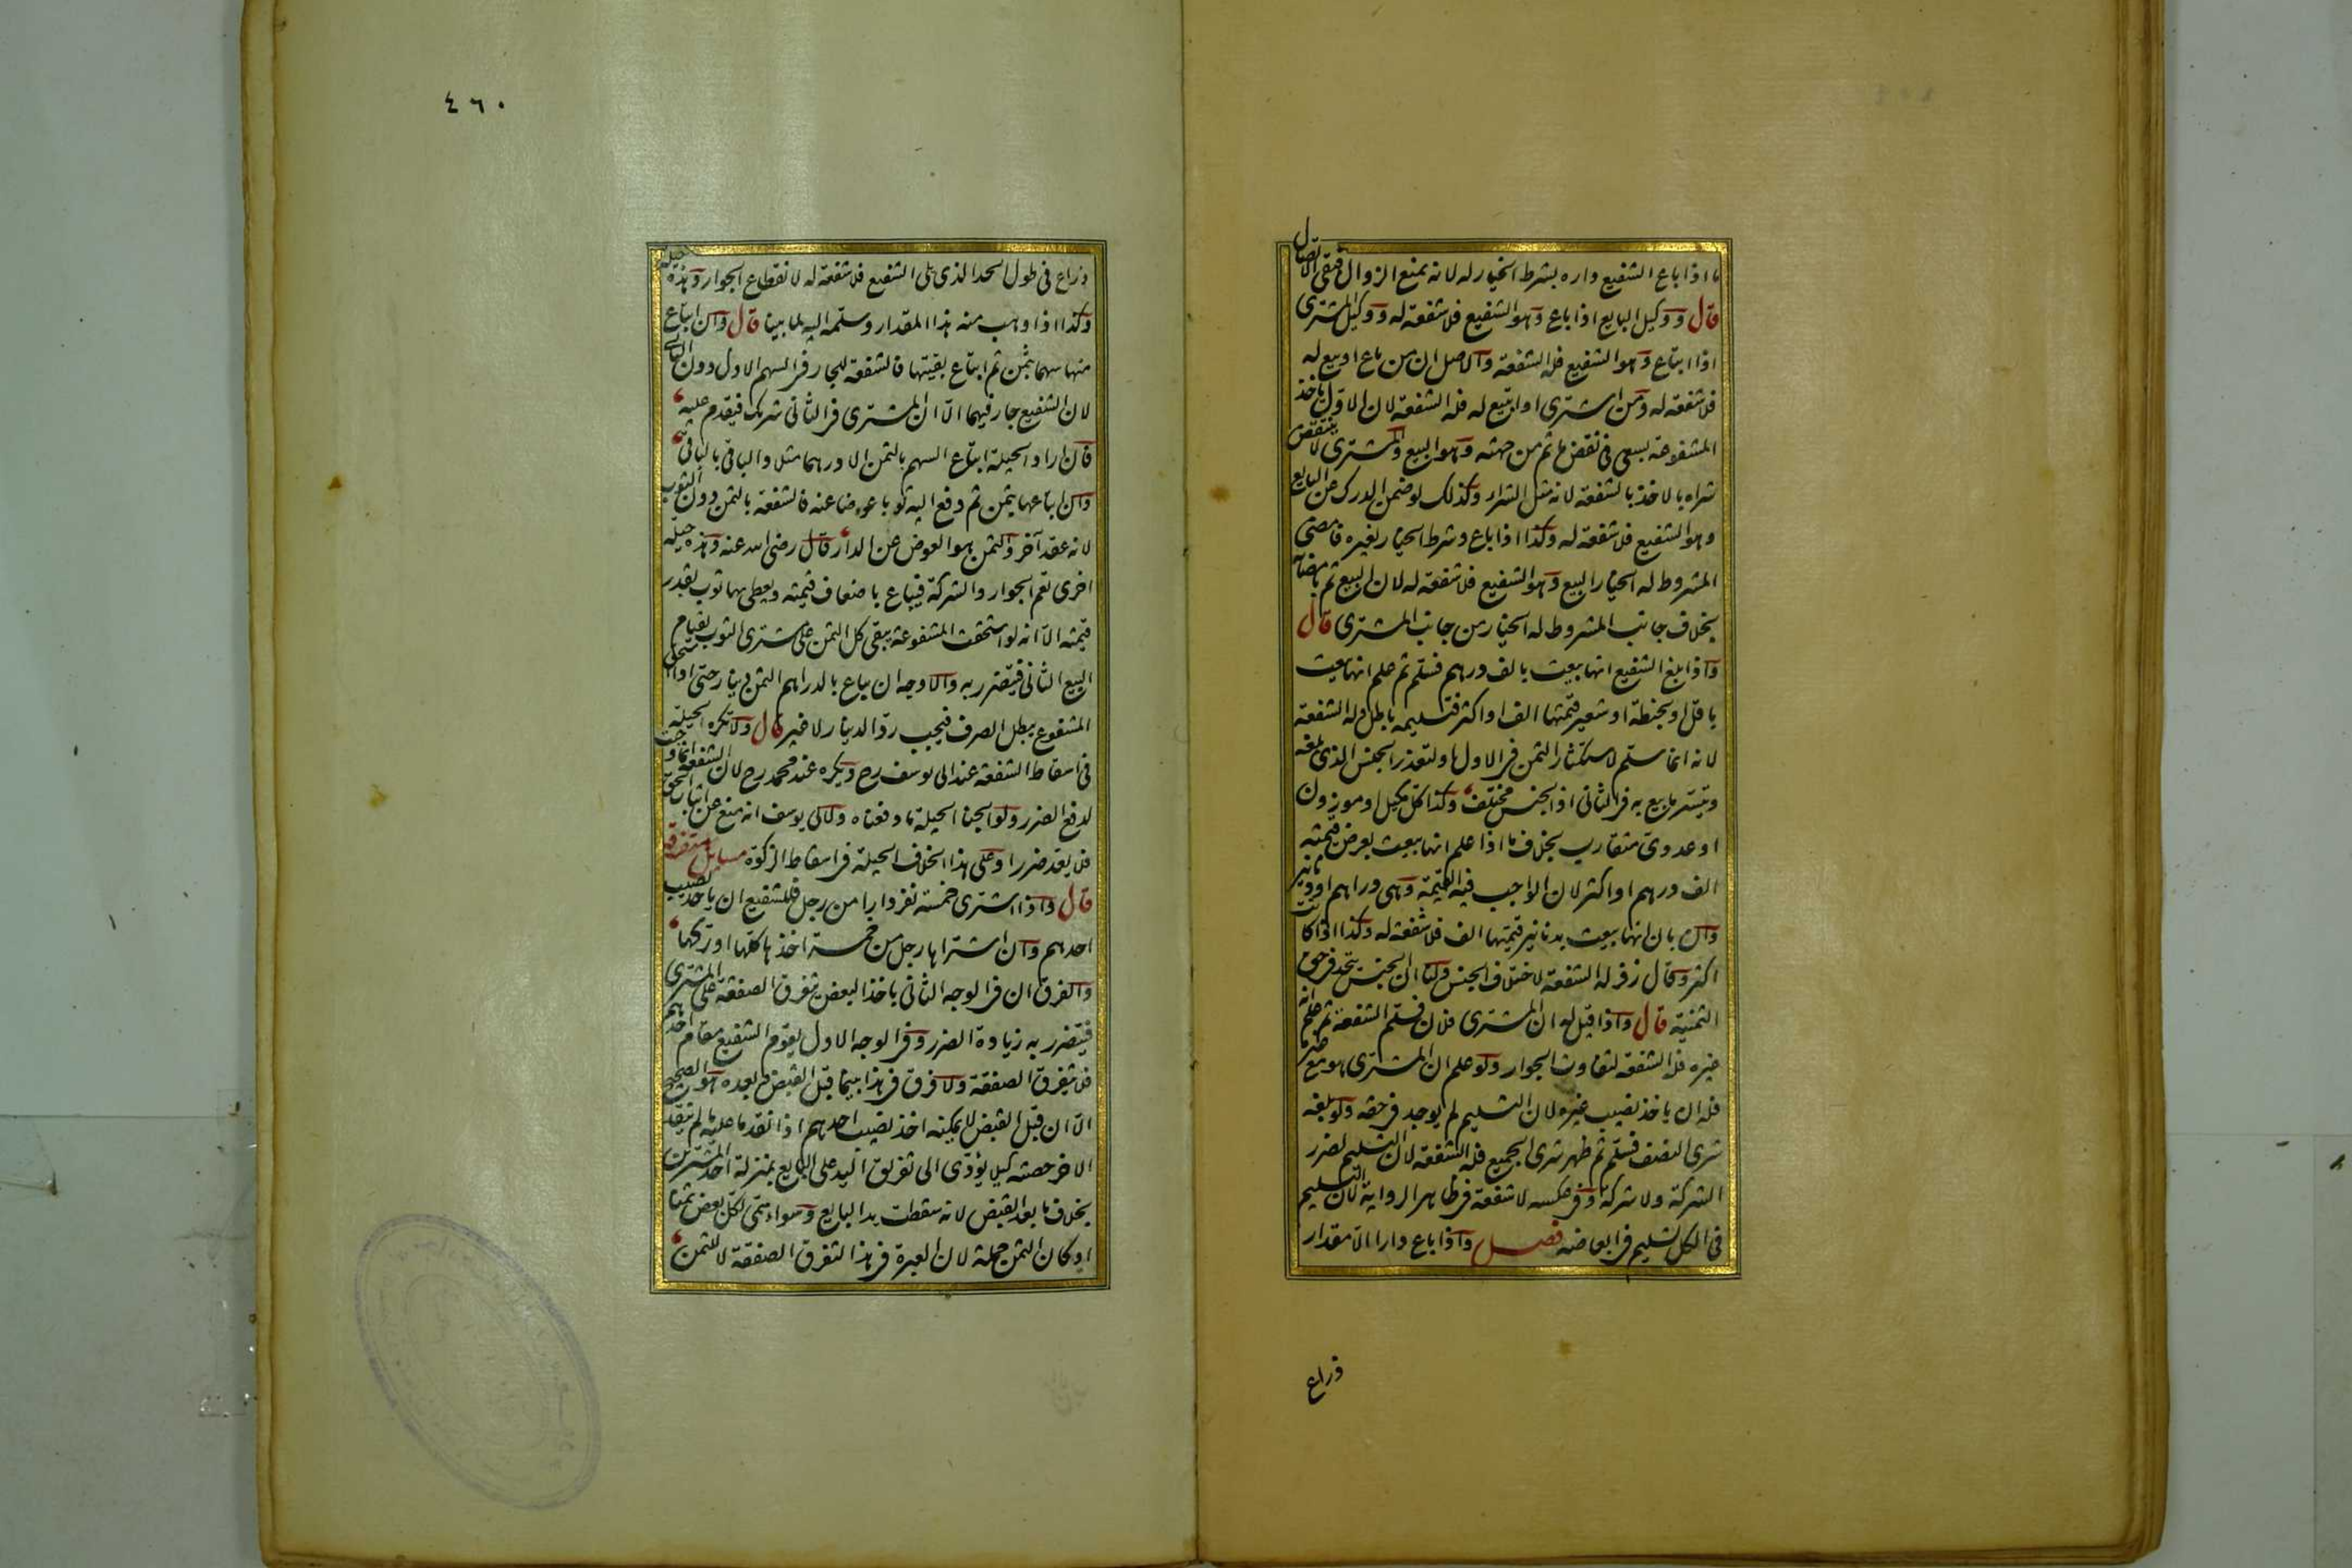 ما اذا باع الشفيع داره بشرط الخيار له لانه يمنع الزوال فبقى الاتصال
قال ووكيل البايع اذا باع وهو الشفيع فلا شفعة له ووكيل المشترى
اذا ابتاع وهو الشفيع فله الشفعة والاصل ان من باع او بيع له
فلا شفعة له ومن اشترى او ابتيع له فله الشفعة لان الاول باخذ
المشفوعة يسعى فى نقض ما تم من جهته وهو البيع والمشترى لا ينتقض
شراه بالاخذ بالشفعة لانه مثل الشراء وكذلك لو ضمن الدرك عن البايع
وهو الشفيع فلا شفعة له وكذا اذا باع وشرط الخيار لغيره فامضى
المشروط له الخيار البيع وهو الشفيع فلا شفعة له لان البيع تم بامضائه
بخلاف جانب المشروط له الخيار من جانب المشترى قال
واذا بلغ الشفيع انها بيعت بالف درهم فسلم ثم علم انها بيعت
باقل او بحنطة او شعير قيمتها الف او اكثر فتسليمه باطل وله الشفعة
لانه انما سلم لاستكثار الثمن فى الاول ولتعذر الجنس الذى بلغه
وتيسر ما بيع به فى الثانى اذ الجنس مختلف وكذا كل مكيل او موزون
او عددى متقارب بخلاف ما اذا علم انها بيعت بعرض قيمته
الف درهم او اكثر لان الواجب فيه القيمة وهى دراهم او دنانير
وان بان انها بيعت بدنانير قيمتها الف فلا شفعة له وكذا اذا كانت
اكثر وقال زفر له الشفعة لاختلاف الجنس ولنا ان الجنس متحد فى حق
الثمنية قال واذا قيل له ان المشترى فلان فسلم الشفعة ثم علم انه
غيره فله الشفعة لتفاوت الجوار ولو علم ان المشترى هو مع غيره
فله ان ياخذ نصيب غيره لان التسليم لم يوجد فى حقه ولو بلغه
شرى النصف فسلم ثم ظهر شرى الجميع فله الشفعة لان التسليم لضرر
الشركة ولا شركة وفى عكسه لا شفعة فى ظاهر الرواية لان التسليم
فى الكل تسليم فى ابعاضه فصل واذا باع دارا الا مقدار
ذراع
٤٦٠
ذراع فى طول الحد الذى يلى الشفيع فلا شفعة له لانقطاع الجوار وهذه حيلة
وكذا اذا وهب منه هذا المقدار وسلمه اليه لما بينا قال وان ابتاع
منها سهما بثمن ثم ابتاع بقيتها فالشفعة للجار فى السهم الاول دون الثانى
لان الشفيع جار فيهما الا ان المشترى فى الثانى شريك فيقدم عليه
فان اراد الحيلة ابتاع السهم بالثمن الا درهما مثلا والباقى بالباقى
وان ابتاعها بثمن ثم دفع اليه ثوبا عوضا عنه فالشفعة بالثمن دون الثوب
لانه عقد آخر والثمن هو العوض عن الدار قال رضى الله عنه وهذه حيلة
اخرى تعم الجوار والشركة فيباع باضعاف قيمته ويعطى بها ثوب بقدر
قيمته الا انه لو استحقت المشفوعة يبقى كل الثمن على مشترى الثوب لقيام
البيع الثانى فيتضرر به والاوجه ان يباع بالدراهم الثمن دينار حتى اذا استحق
المشفوع يبطل الصرف فيجب رد الدينار لا غير قال ولا تكره الحيلة
فى اسقاط الشفعة عند ابى يوسف رح ويكره عند محمد رح لان الشفعة انما وجبت
لدفع الضرر ولو ابحنا الحيلة ما دفعناه ولابى يوسف انه منع عن اثبات الحق
فلا يعد ضررا وعلى هذا الخلاف الحيلة فى اسقاط الزكوة مسايل متفرقة
قال واذا اشترى خمسة نفر دارا من رجل فللشفيع ان ياخذ نصيب
احدهم وان اشتراها رجل من خمسة اخذها كلها او تركها
والفرق ان فى الوجه الثانى باخذ البعض يتفرق الصفقة على المشترى
فيتضرر به زيادة الضرر وفى الوجه الاول يقوم الشفيع مقام احدهم
فلا يتفرق الصفقة ولا فرق فى هذا بينما قبل القبض وبعده هو الصحيح
الا ان قبل القبض لا يمكنه اخذ نصيب احدهم اذا نقد ما عليه ما لم ينقد
الاخر حصته كيلا يؤدى الى تفريق اليد على البايع بمنزلة احد المشتريين
بخلاف ما بعد القبض لانه سقطت يد البايع وسواء سمى لكل بعض ثمنا
او كان الثمن جملة لان العبرة فى هذا لتفرق الصفقة لا للثمن